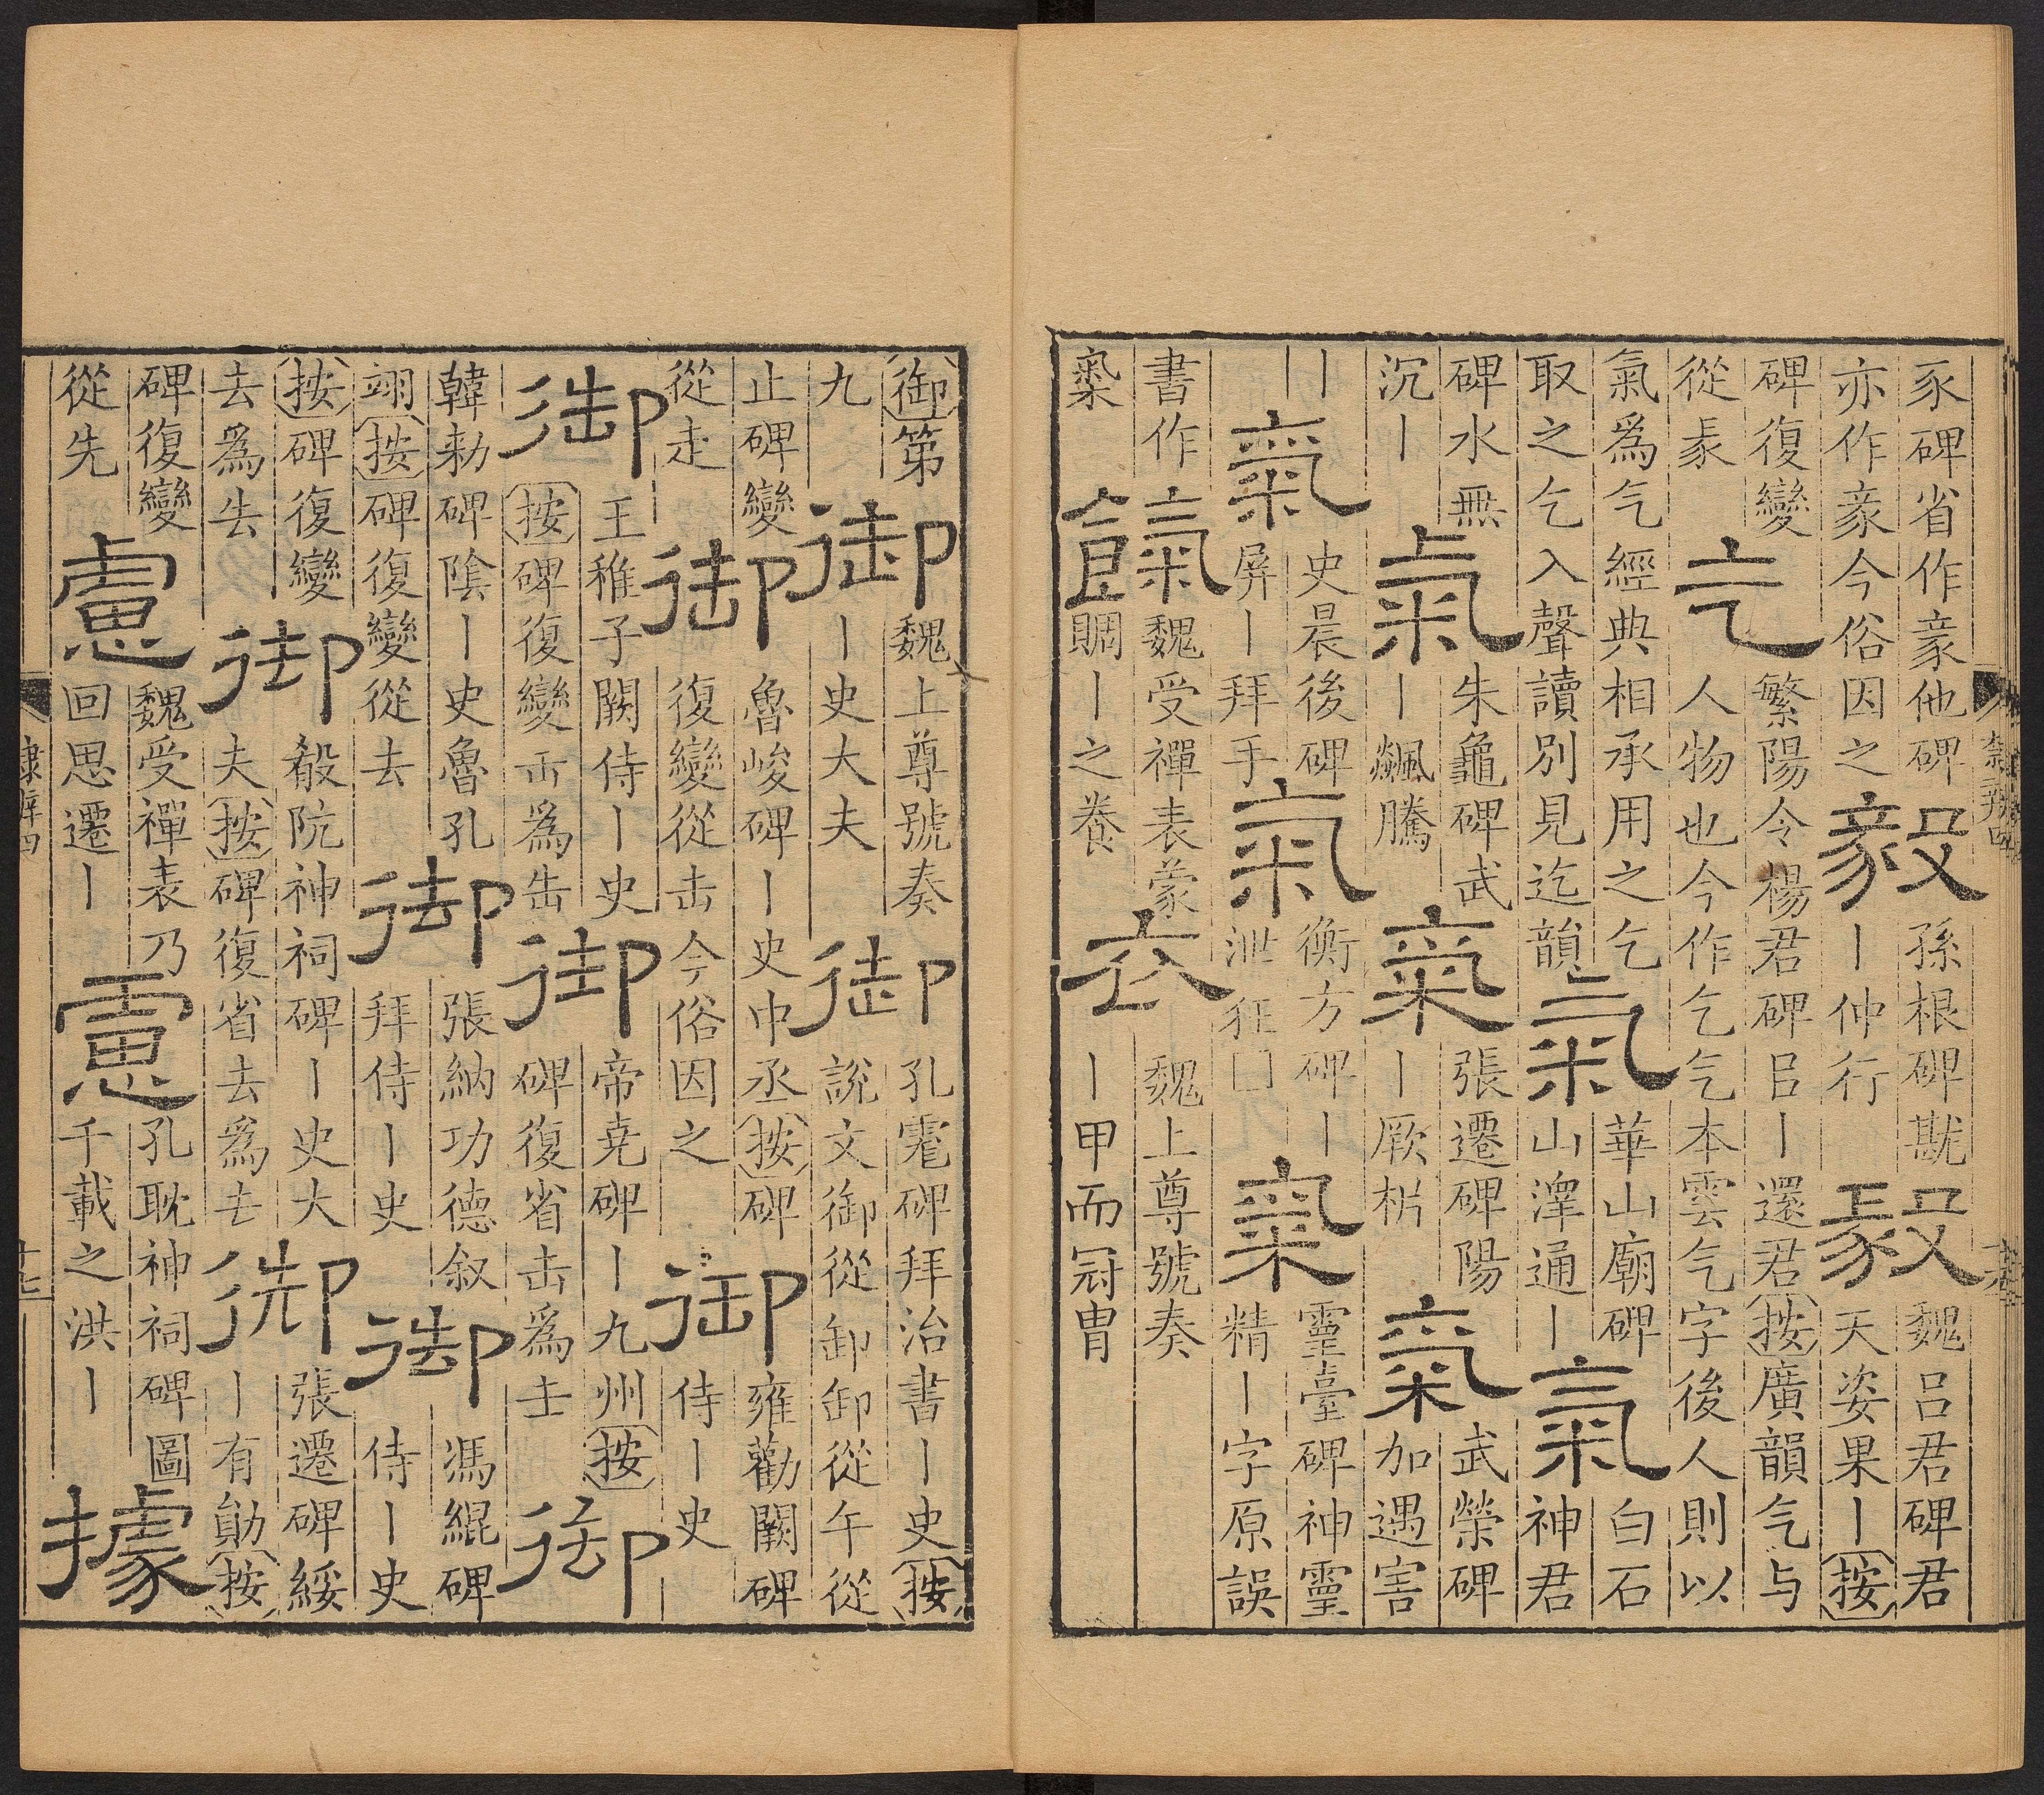 豕碑省作豙他碑亦作豙今俗因之毅孫根碑戡丨仲行毅魏吕君碑君天姿果丨按
碑復變從彖气繁陽令楊君碑㠯丨還君按廣韻气与人物也今作乞气本雲气字後人則以
氣爲气經典相承用之乞取之乞入聲讀別見迄韻氣華山廟碑山澤通丨氣白石神君
碑水無沉丨氣朱龜碑武丨飆騰氣張遷碑陽丨厥栟氣武榮碑加遇害
丨氣史晨後碑屏丨拜手氣衡方碑丨泄狂囗氣靈臺碑神靈精丨字原誤
書作餼魏受禪表蒙賙丨之養衣魏上尊號奏丨甲而冠冑
隸辨四
御第九御魏上尊號奏丨史大夫御孔碑拜治書丨史按說文御從卸卸從午從
止碑變從走御魯峻碑丨史中丞按碑復變從𠙽今俗因之御雍勸闕碑侍丨史
御王稚子闕侍丨史按碑復變爲缶御帝堯碑丨九州按碑復省爲御
韓勑碑陰丨史魯孔翊按碑復變從去御張納功德叙拜侍丨史御馮緄碑侍丨史
按碑復變去爲御殽阬神祠碑丨史大夫按碑復省去爲御張遷碑綏丨有勛按
碑復變從先慮魏受禪表乃回思遷丨慮孔耽神祠碑圖千載之洪丨據
隸辨四
十七